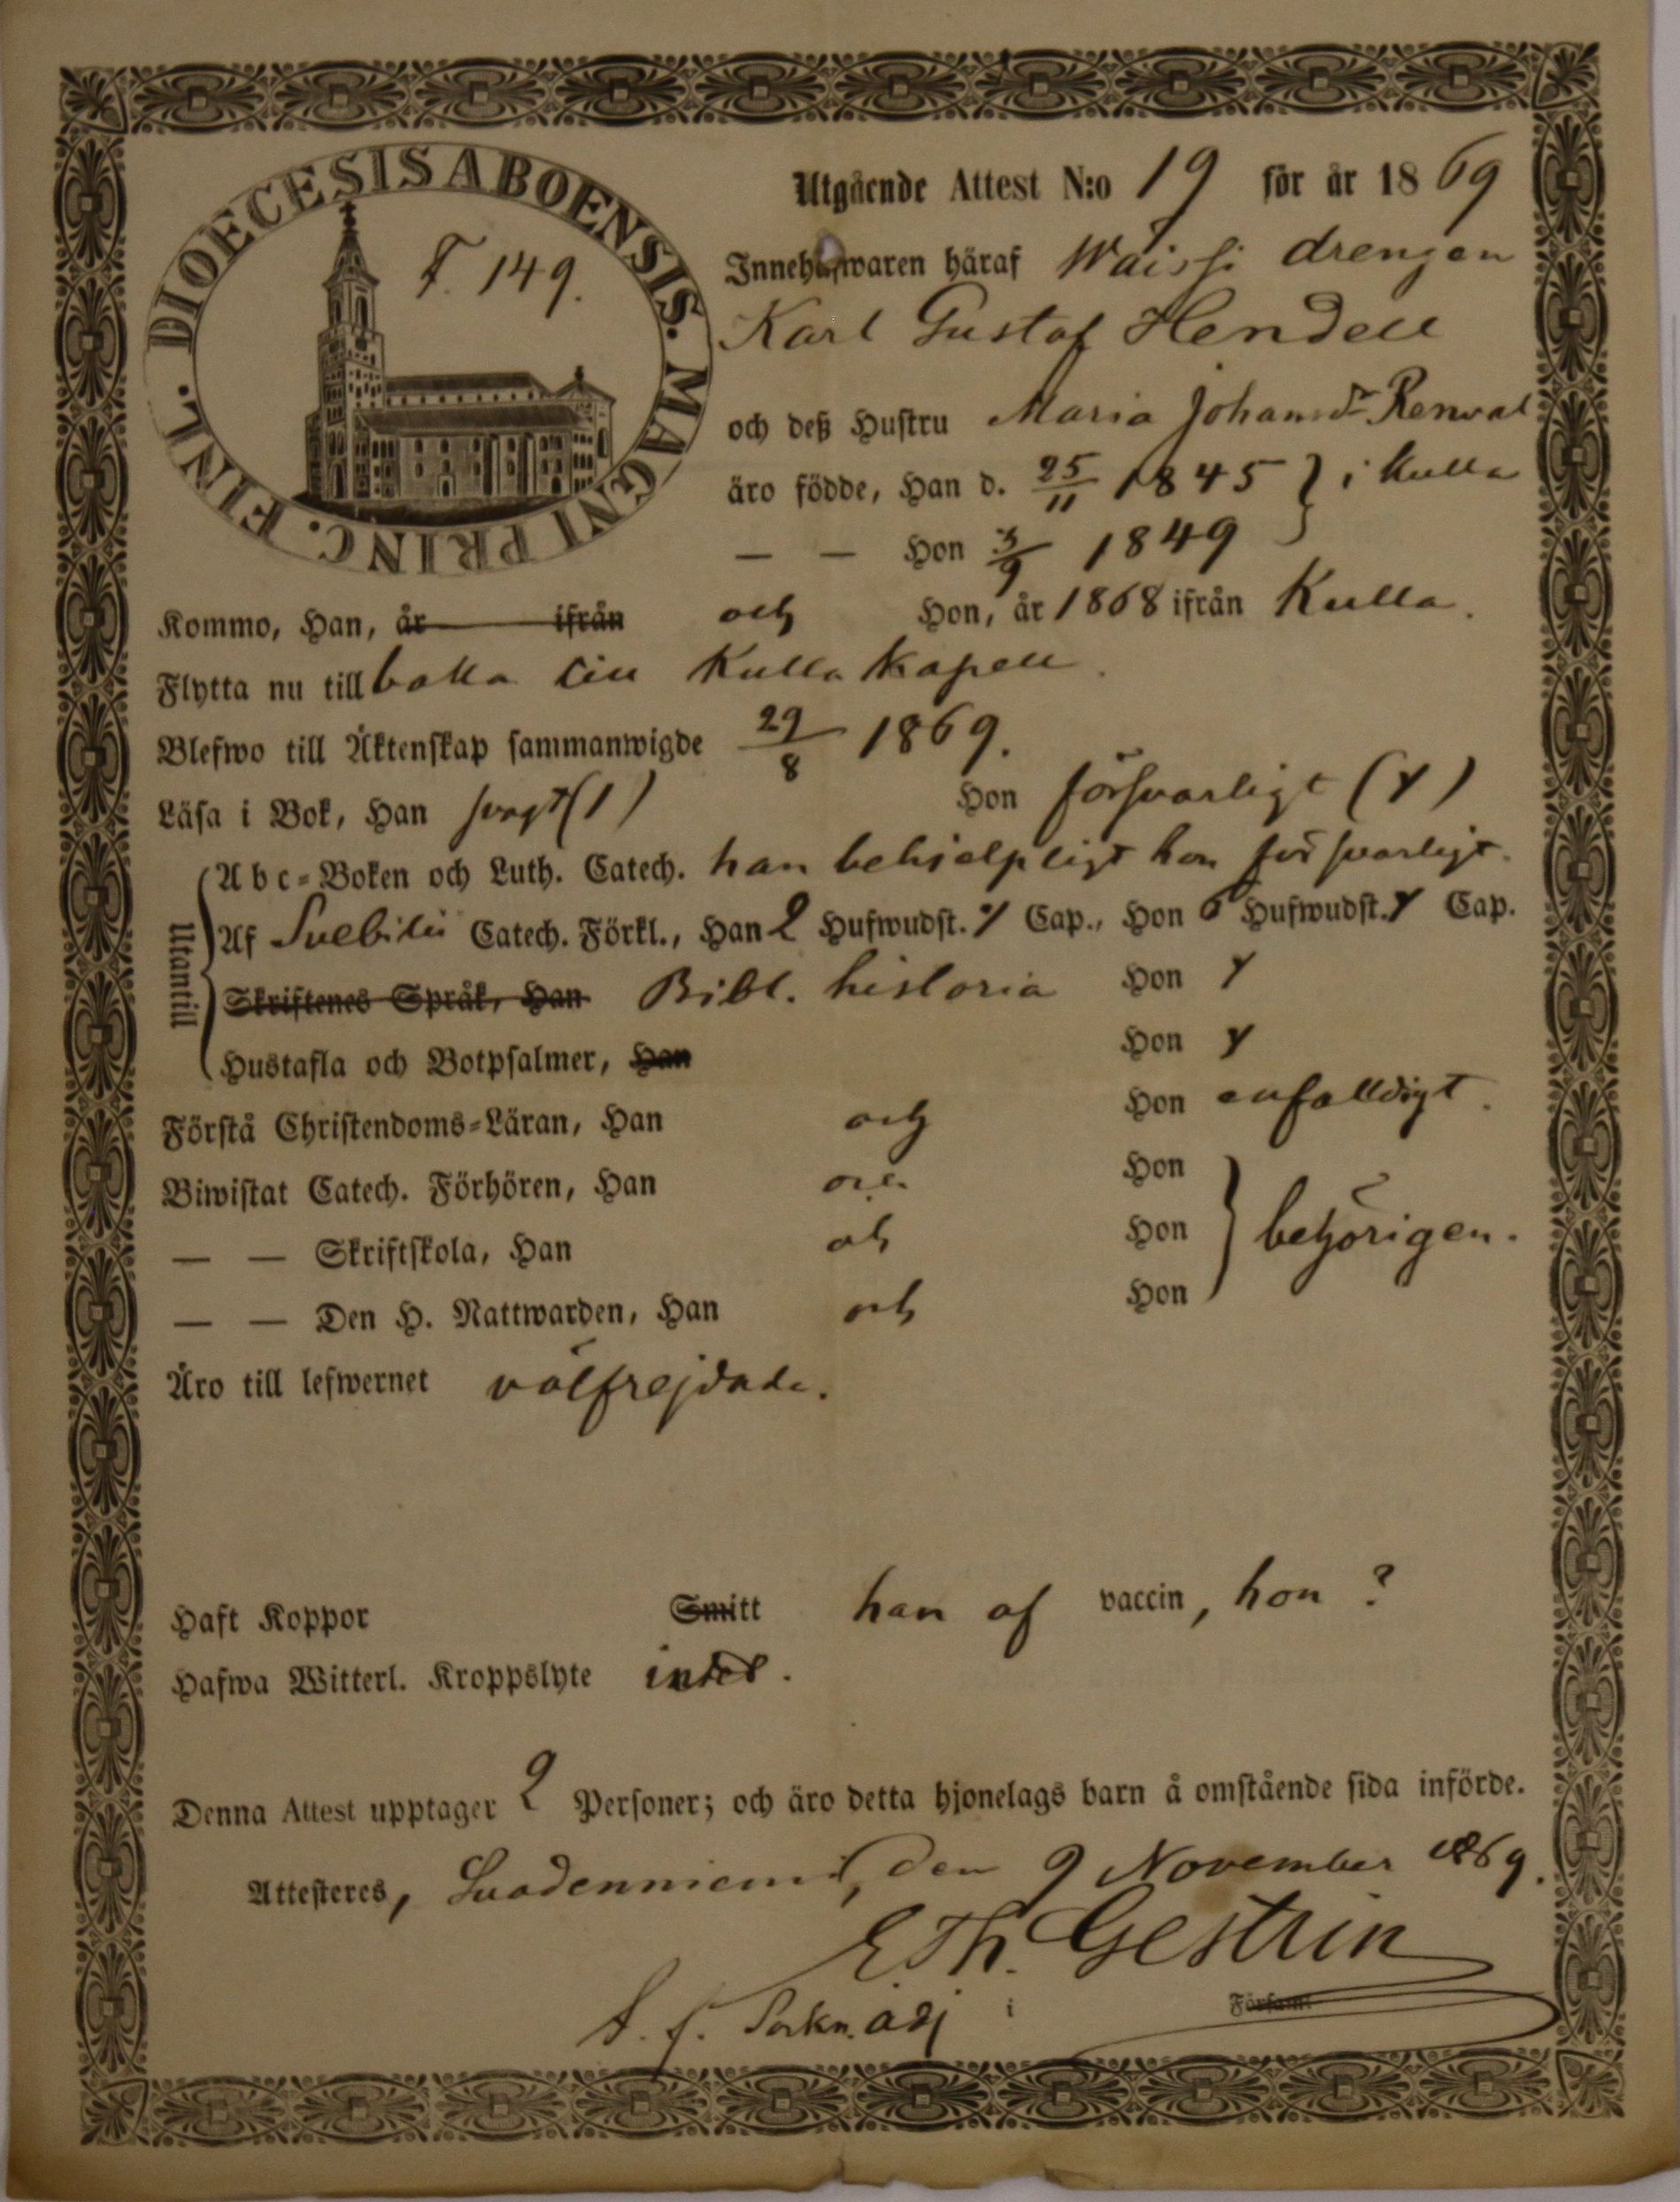 DIOECESIS ABOENSIS. MAGNI PRINC. FINL.
F. 149.
Utgående Attest N:o 19 för år 1869
Innehafwaren häraf Waissi drengen
Karl Gustaf Hendell
och deß Hustru Maria Johansdr Renwal
äro födde, Han d. 25/11 1845 } i Kulla
— — Hon 3/9 1849
Kommo, Han, år ifrån och Hon, år 1868 ifrån Kulla.
Flytta nu till baka till Kulla Kapell.
Blefwo till Äktenskap sammanwigde 29/8 1869.
Läsa i Bok, Han svagt (1) Hon försvarligt (Y)
Utantill
Abc-Boken och Luth. Catech. han behielpligt hon försvarligt.
Af Svebilii Catech. Förkl., Han 2 Hufwudst. Cap., Hon 6 Hufwudst. Y Cap.
Skriftenes Språk, Han Bibl. historia Hon Y
Hustafla och Botpsalmer, Han Hon Y
Förstå Christendoms-Läran, Han och Hon enfalldigt.
Biwistat Catech. Förhören, Han och Hon
— — Skriftskola, Han och Hon } behörigen.
— — Den H. Nattwarden, Han och Hon
Äro till lefwernet välfrejdade.
Haft Koppor Smitt han af vaccin, hon ?
Hafwa Witterl. Kroppslyte intet.
Denna Attest upptager 2 Personer; och äro detta hjonelags barn å omstående sida införde.
Attesteres, Suodenniemi, den 9 November 1869.
E. Th. Gestrin
Sokn. adj i Församl